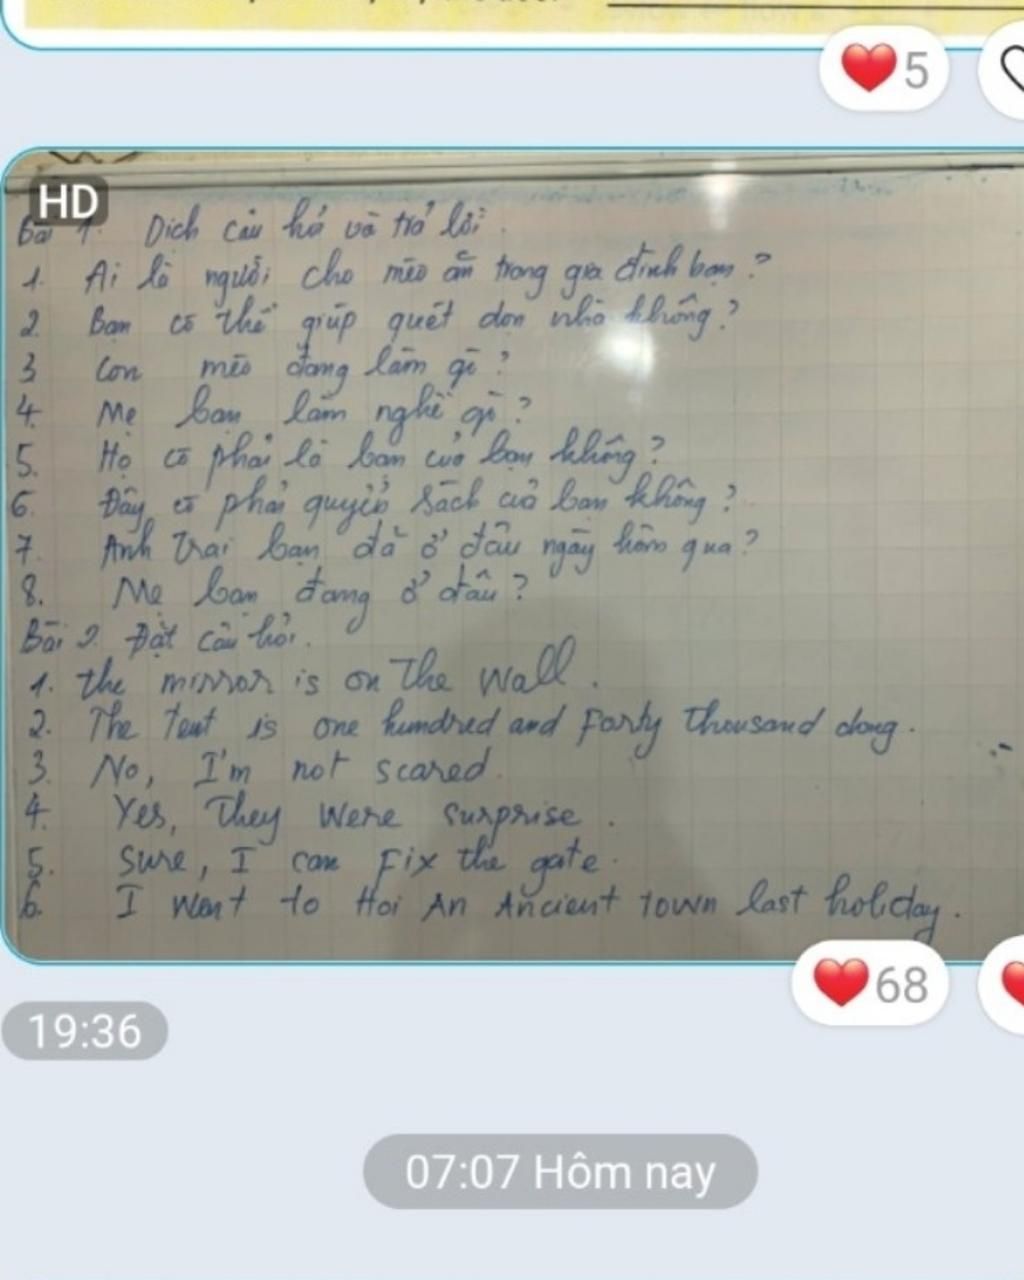 5
HD
Bài 1. Dịch câu hỏi và trả lời.
1. Ai là người cho mèo ăn trong gia đình bạn?
2. Bạn có thể giúp quét dọn nhà không?
3 Con mèo đang làm gì?
4. Mẹ bạn làm nghề gì?
5. Họ có phải là bạn của bạn không?
6. Đây có phải quyển sách của bạn không?
7. Anh trai bạn đã ở đâu ngày hôm qua?
8. Mẹ bạn đang ở đâu?
Bài 2. Đặt câu hỏi.
1. the mirror is on The Wall.
2. The Tent is one hundred and Forty Thousand dong.
3. No, I'm not scared.
4. Yes, They Were surprise.
5. Sure, I can Fix the gate.
6. I Went to Hoi An Ancient Town last holiday.
68
19:36
07:07 Hôm nay